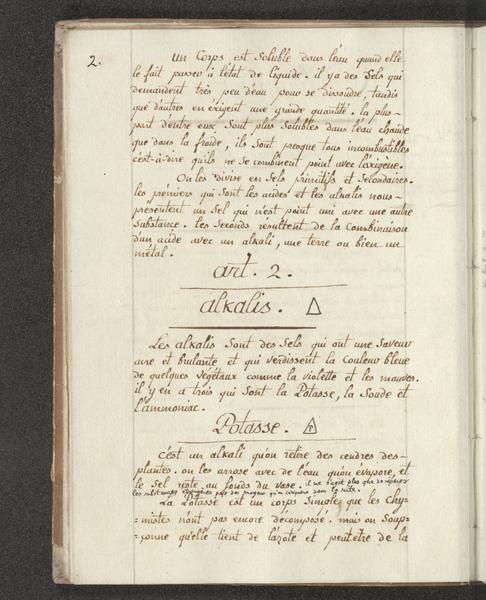 2.
un Corps est Soluble dans l'eau quand elle
le fait passer à l'état de liquide. il y a des Sels qui
demandent très peu d'eau pour se dissoudre, tandis
que d'autres en éxigent une grande quantité. la plus-
part d'entre eux Sont plus Solubles dans l'eau chaude
que dans la froide, ils Sont presque tous incombustibles
c'est-à-dire qu'ils ne se combinent point avec l'oxigène.
On les divise en Sels primitifs et Secondaires.
les premiers qui sont les acides et les alkalis nous-
présentent un Sel qui n'est point uni avec une autre
Substance. les Seconds résultent de la Combinaison
d'un acide avec un alkali, une terre ou bien un
métal.
art. 2.
alkalis. △
Les alkalis Sont des Sels qui ont une Saveur
acre et brulante et qui verdissent la Couleur bleue
de quelques végétaux comme la violette et les mauves.
il y en a trois qui Sont la Potasse, la Soude et
l'ammoniac.
Potasse.
c'est un alkali qu'on retire des cendres des-
plantes. on les arrose avec de l'eau qu'on évapore, et
le Sel reste au fonds du vase. il ne s'agit plus que de
les substances par des moyens qu'on indiquera dans la suite.
La Potasse est un corps Simple que les Chy=
=mistes n'ont pas encore décomposé. mais on Soup=
=çonne qu'elle tient de l'azote et peut être de la